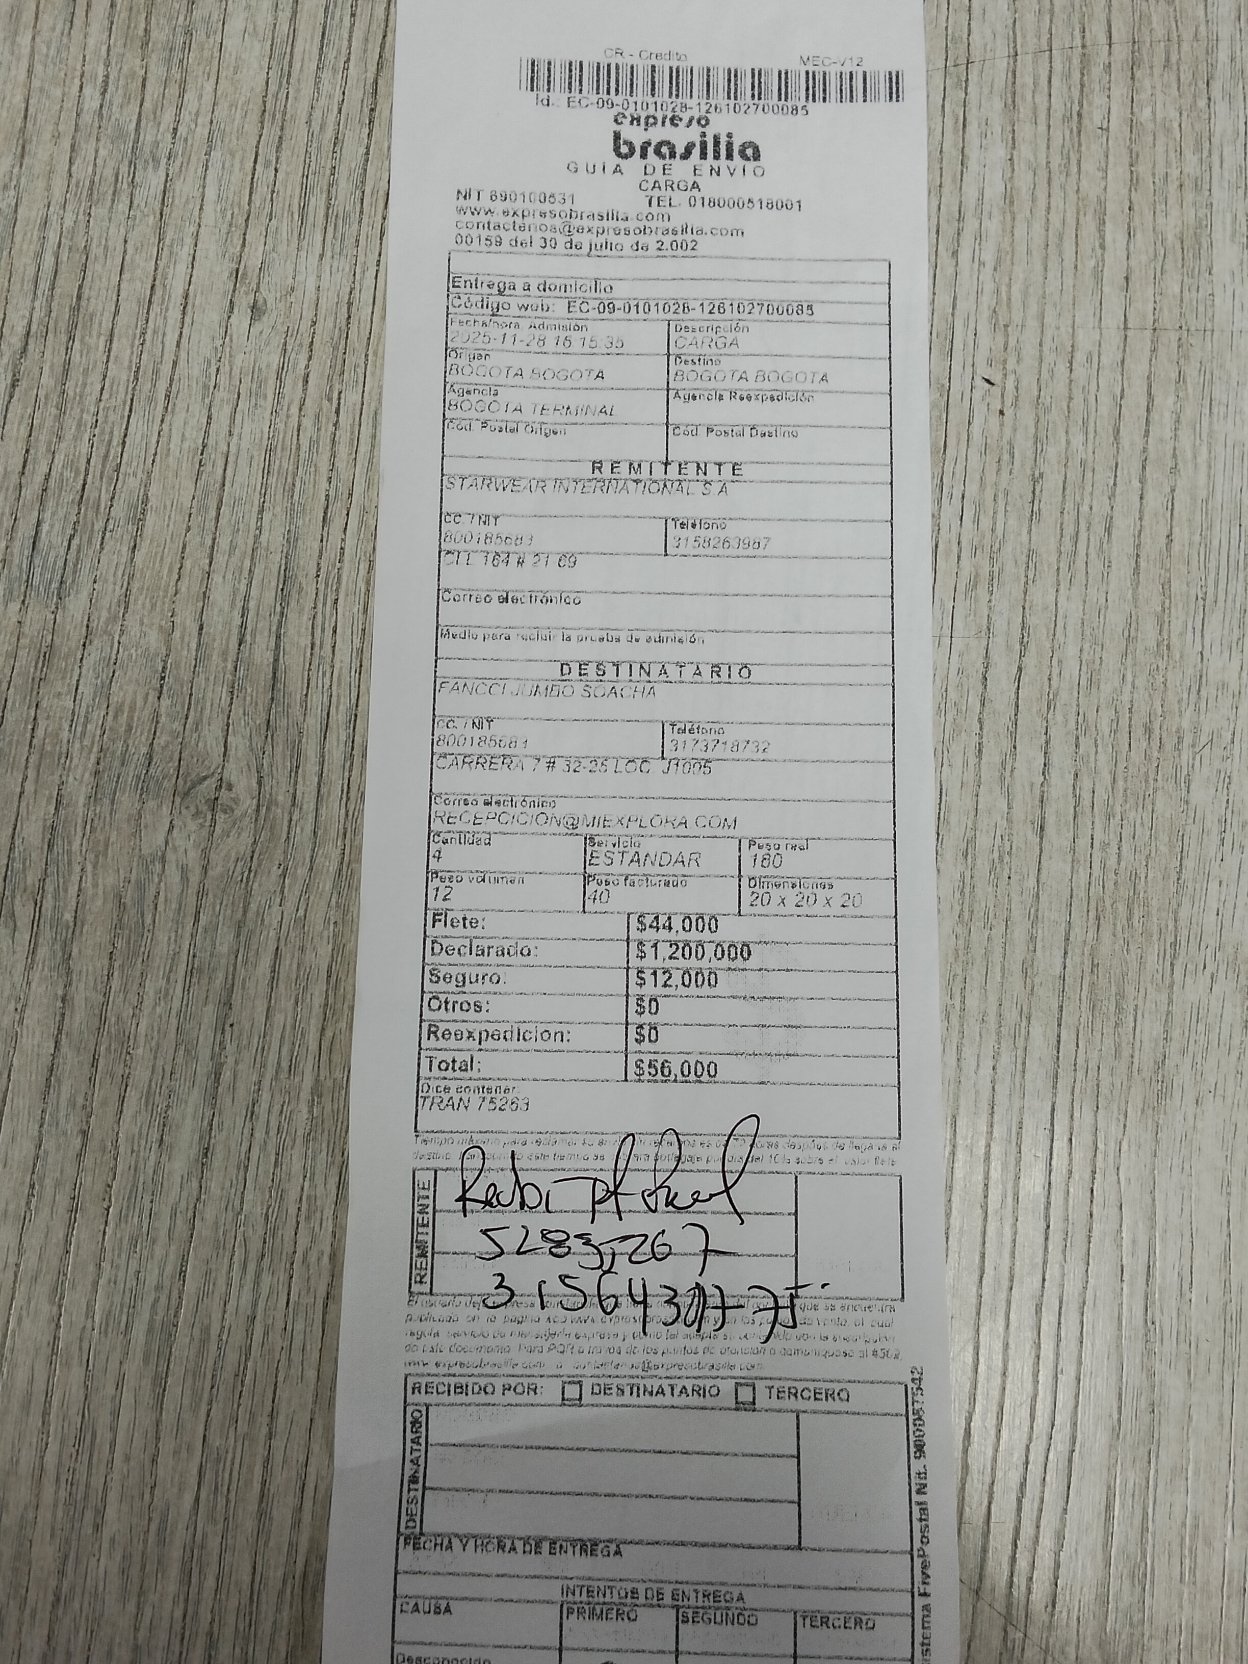 CR - Credito MEC-V12
Id.: EC-09-0101028-126102700085
expreso
brasilia
GUIA DE ENVIO
CARGA
NIT 890100531 TEL. 018000518001
www.expresobrasilia.com
contactenos@expresobrasilia.com
00159 del 30 de julio de 2.002
Entrega a domicilio
Código web: EC-09-0101028-126102700085
Fecha/hora Admisión Descripción
2025-11-28 16 15:35 CARGA
Origen Destino
BOGOTA BOGOTA BOGOTA BOGOTA
Agencia Agencia Reexpedición
BOGOTA TERMINAL
Cód. Postal Origen Cód. Postal Destino
REMITENTE
STARWEAR INTERNATIONAL S A
CC. / NIT Teléfono
800185683 3158263987
CLL 164 # 21 69
Correo electrónico
Medio para recibir la prueba de admisión
DESTINATARIO
FANCCI JUMBO SOACHA
CC. / NIT Teléfono
800185683 3173718732
CARRERA 7 # 32-25 LOC J1005
Correo electrónico
RECEPCICION@MIEXPLORA.COM
Cantidad Servicio Peso real
4 ESTANDAR 160
Peso volumen Peso facturado Dimensiones
12 40 20 x 20 x 20
Flete: $44,000
Declarado: $1,200,000
Seguro: $12,000
Otros: $0
Reexpedicion: $0
Total: $56,000
Dice contener:
TRAN 75263
Tiempo máximo para reclamar su
REMITENTE
RECIBIDO POR: DESTINATARIO TERCERO
DESTINATARIO
FECHA Y HORA DE ENTREGA
INTENTOS DE ENTREGA
CAUSA PRIMERO SEGUNDO TERCERO
Desconocido
Sistema FivePostal Nit. 900087542